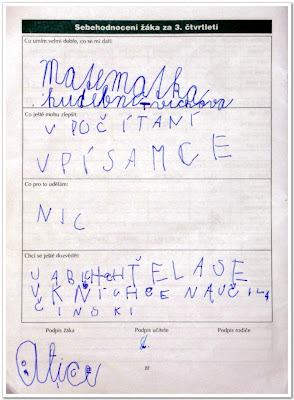 Sebehodnocení žáka za 3. čtvrtletí
Co umím velmi dobře, co se mi daří:
Matematika
hudební
Co ještě mohu zlepšit:
V POČÍTANÍ
V PÍSAMCE
Co pro to udělám:
NIC
Chci se ještě dozvědět:
ŤELASE
V KNICHCE NAUČILA
ČINSKI
Podpis žáka Podpis učitele Podpis rodiče
Alice